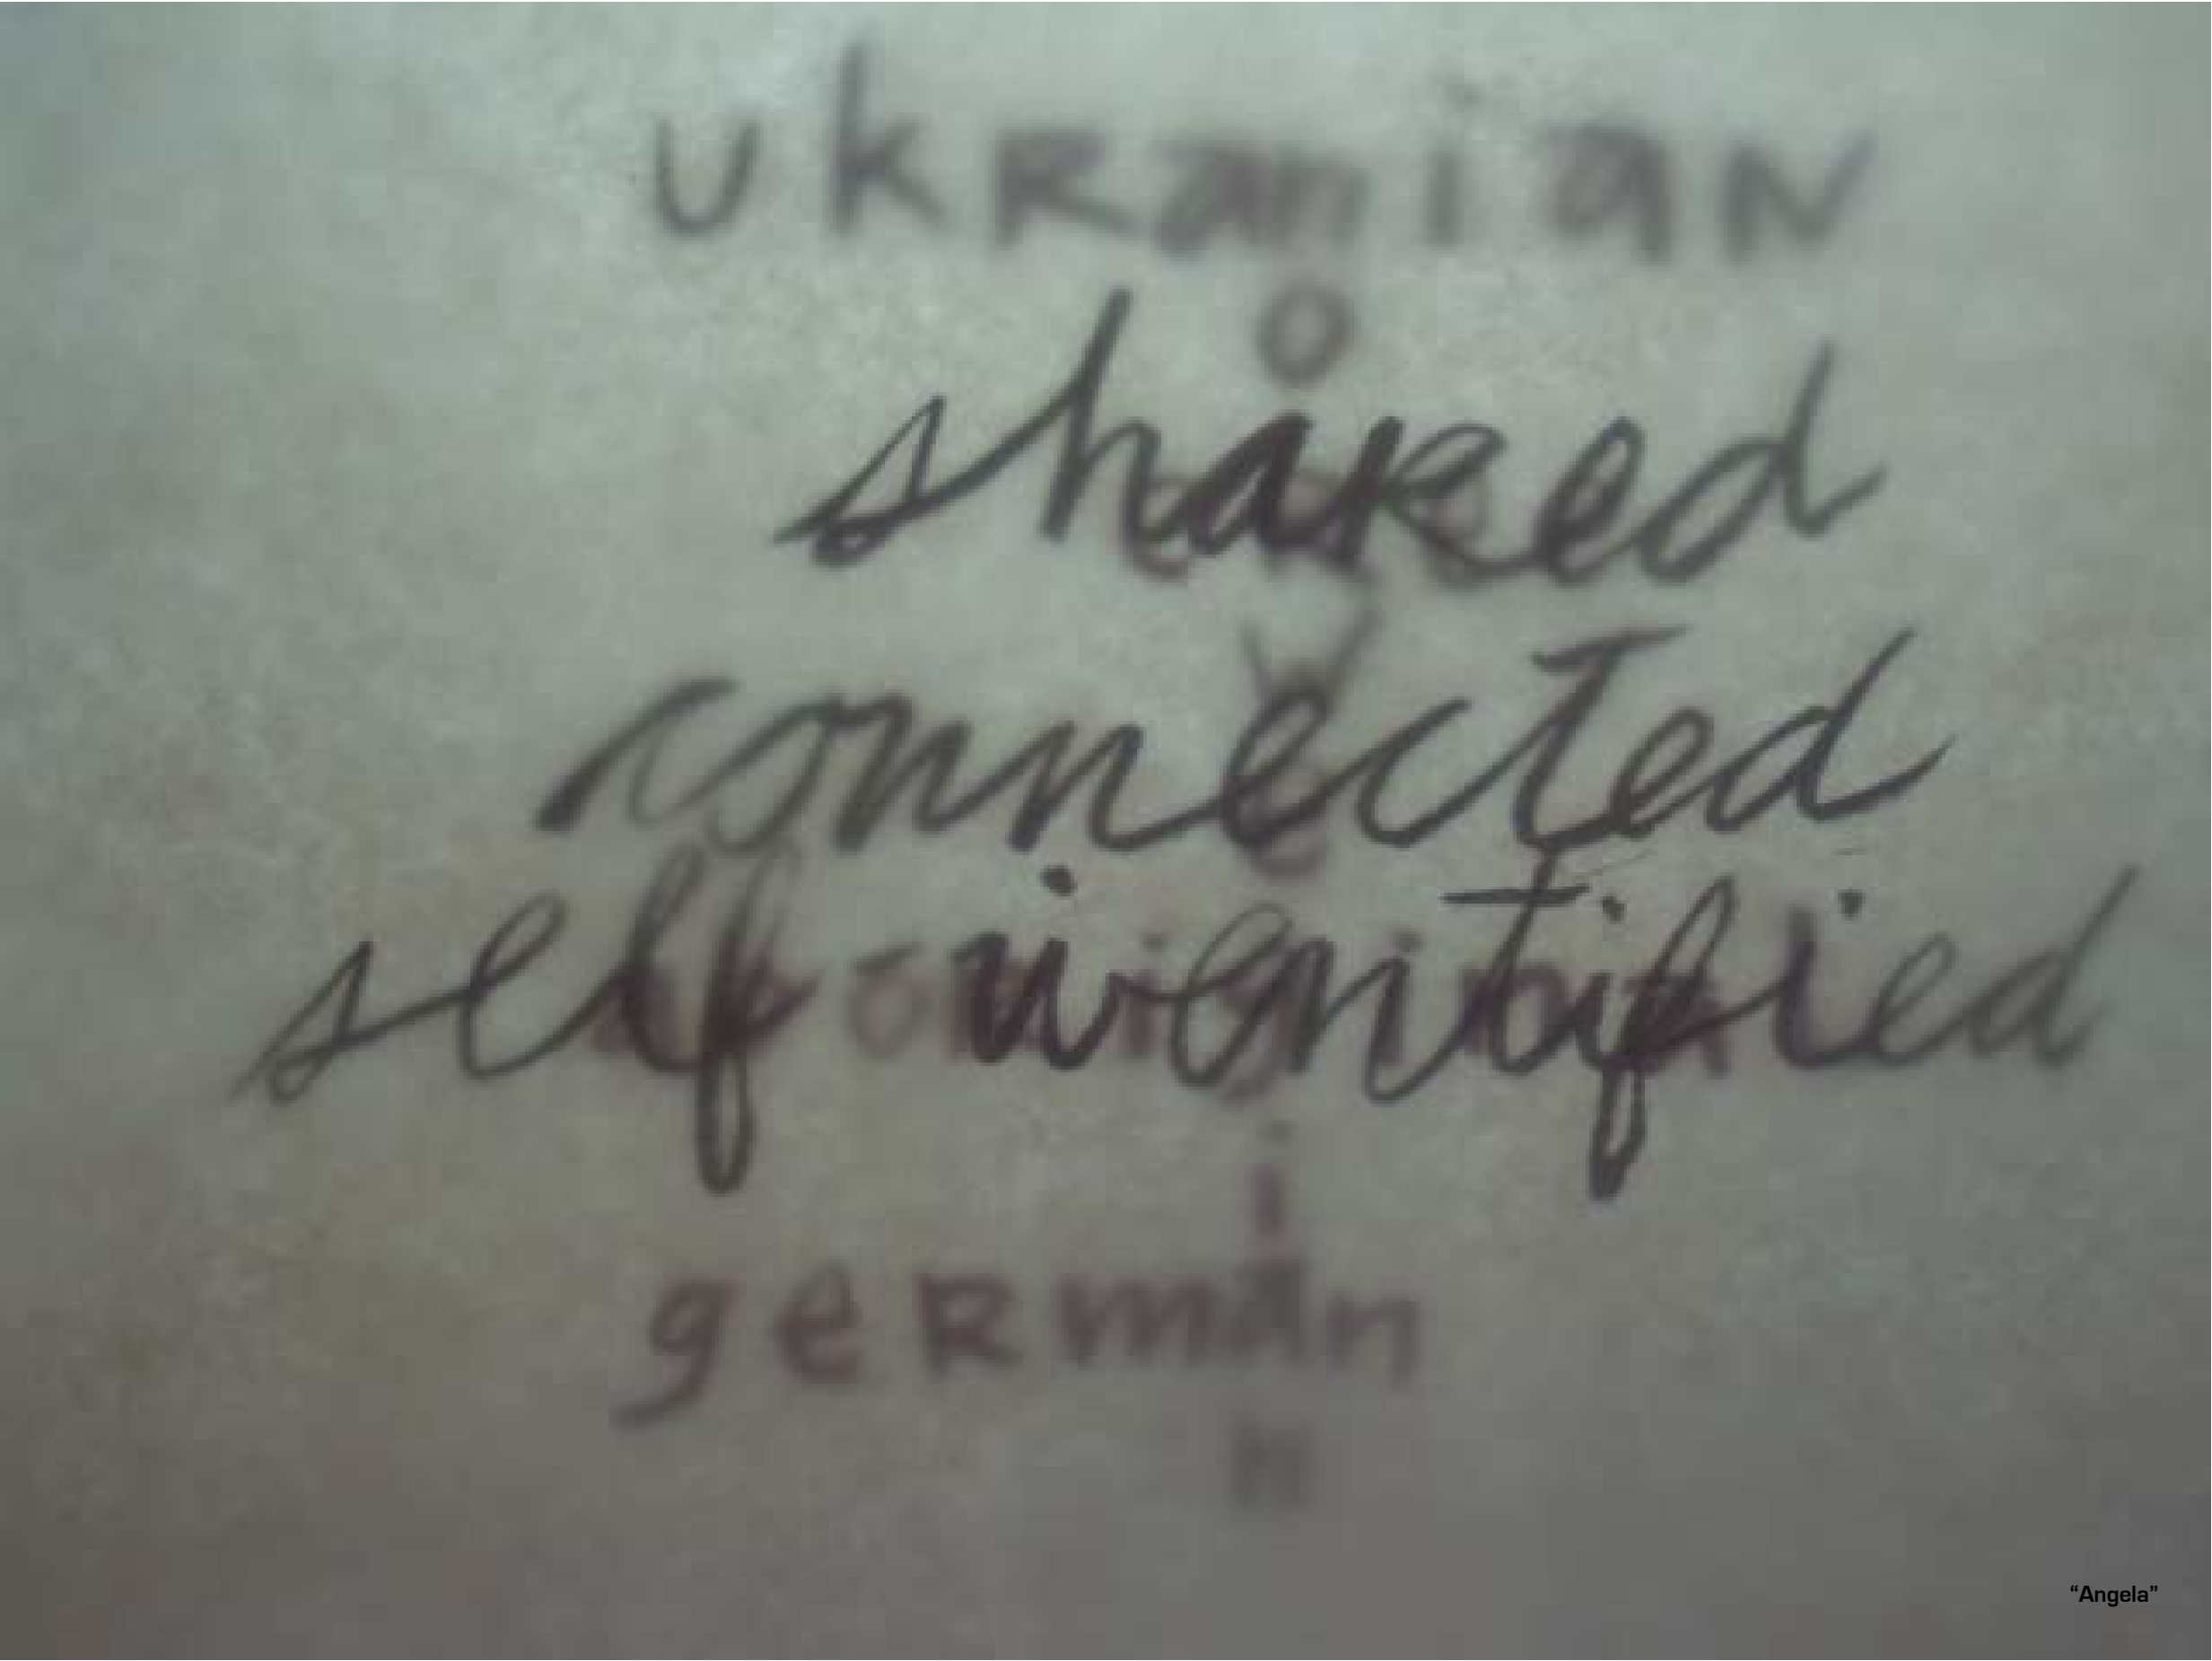 ukRanian
shared
connected
self identified
geRman
"Angela"